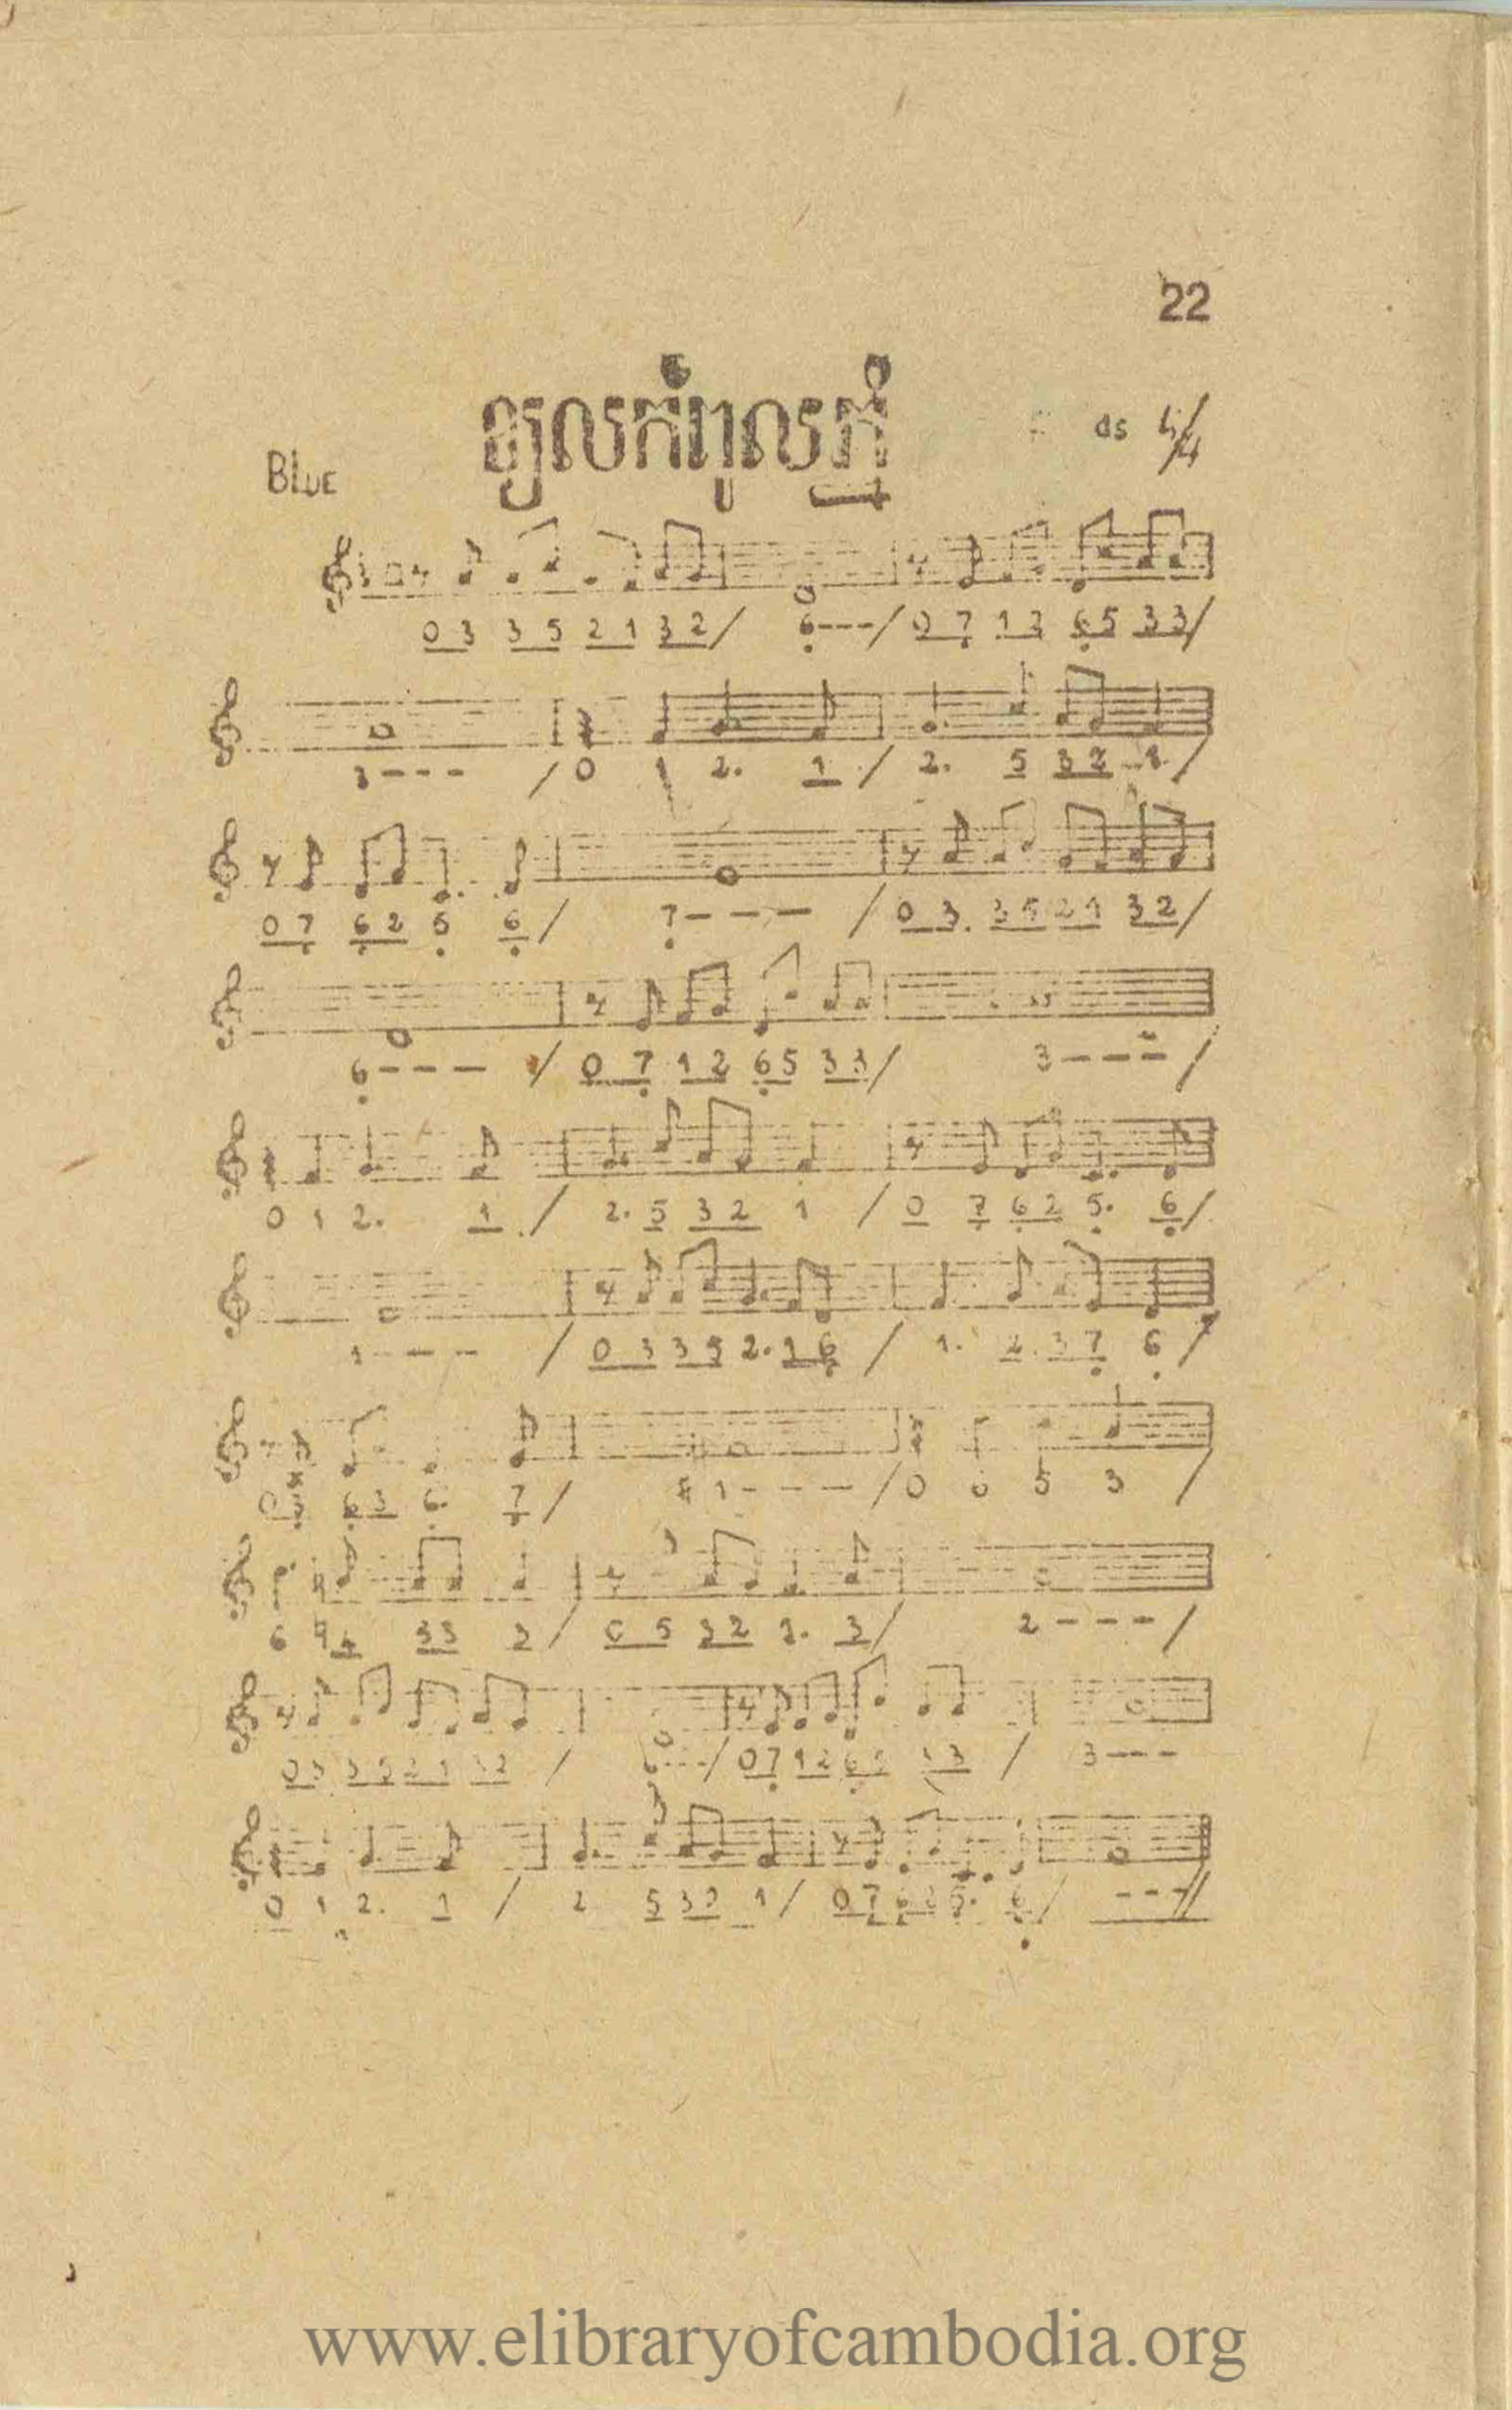 22
ខ្យល់កំពូលភ្នំ
Blue
03 35 21 32/ 6---/ 07 12 65 33/
3--- /0 1 2. 1 / 2. 5 32 1 /
07 62 5 6/ 7--- /03. 35 21 32/
6--- / 07 12 65 33/ 3--- /
0 1 2. 1 / 2. 5 32 1 / 0 7 62 5. 6/
1--- / 03 35 2. 16 / 1. 2 37 6 /
63 6. 7/ 1--- /0 6 5 3 /
6 4 33 3/ 5 32 1. 3/ 2--- /
03 35 21 32 / 6---/ 07 12 65 33 / 3---
0 1 2. 1 / 2 532 1/ 07 62 5. 6/ ---//
www.elibraryofcambodia.org